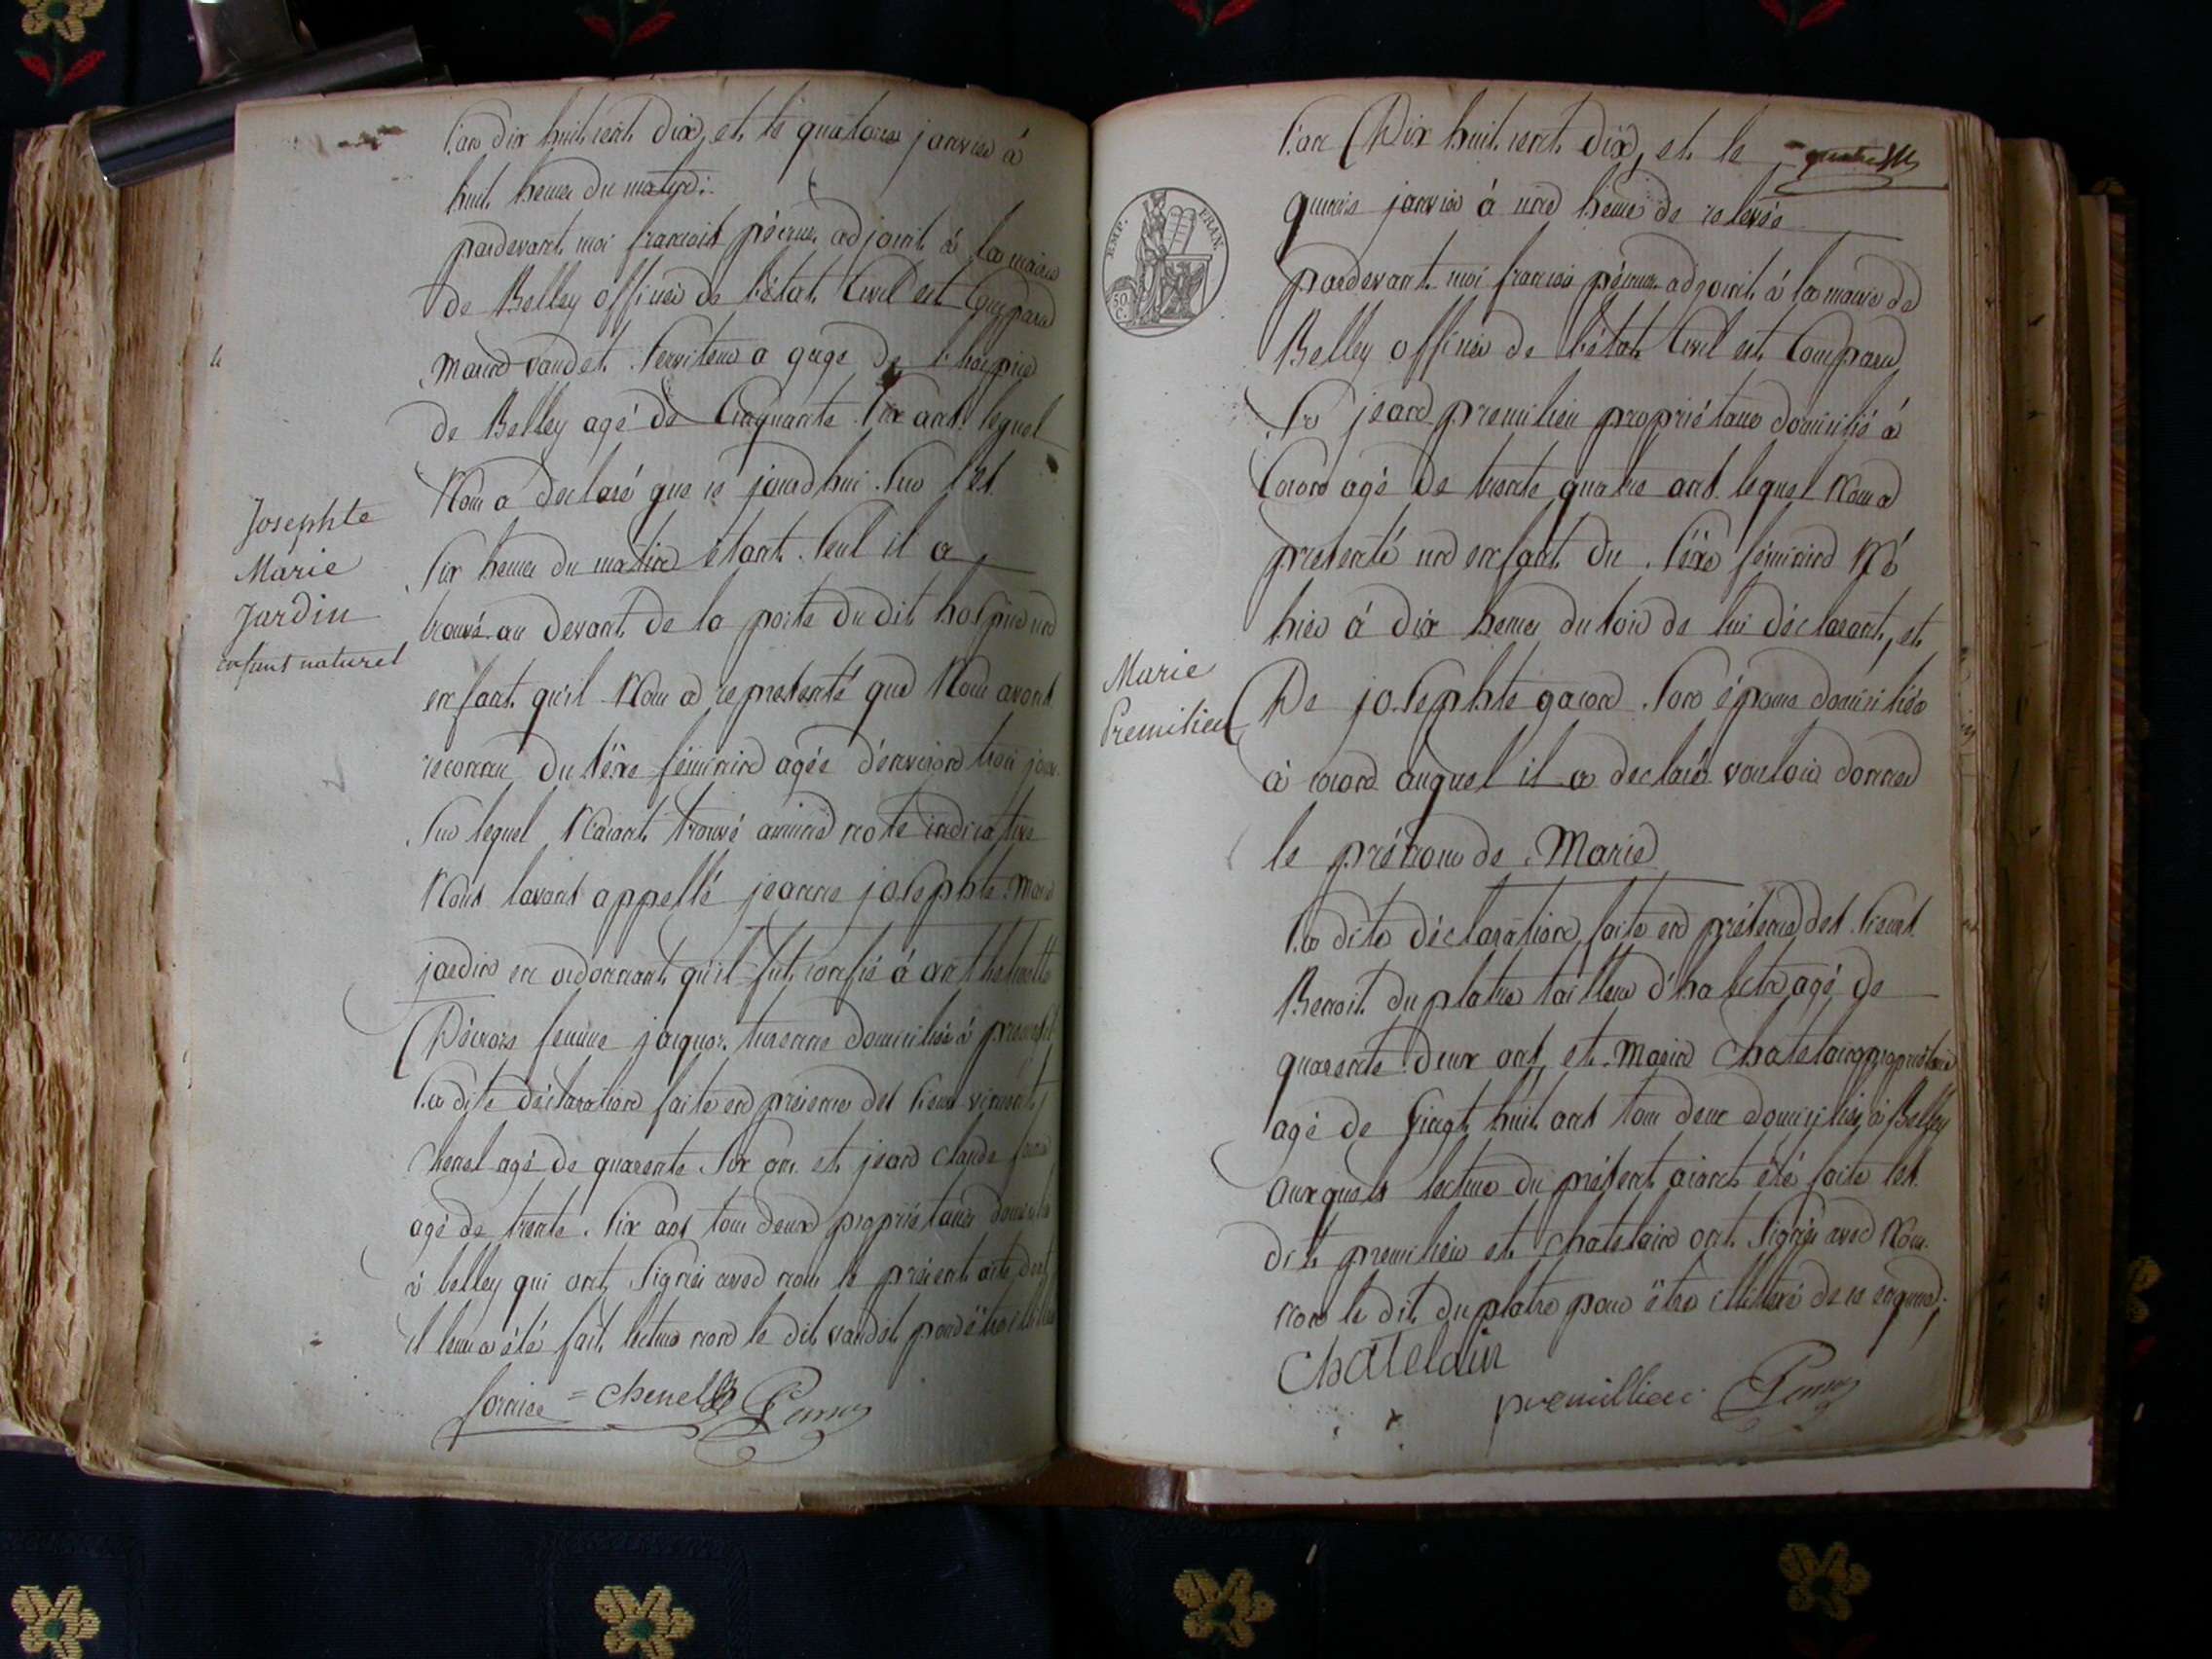 L'an dix huit cent dix, et le quatorze janvier à
huit heures du matin:
pardevant moi francois péirne adjoint à la mairie
de Belley officier de l'état Civil est Comparu
Marin vaudet Serviteur a gage de l'hospice
de Belley agé de Cinquante Six ans lequel
Nous a déclaré que ce jourd'hui Sur les
Six heures du matin étant Seul il a
trouvé au devant de la porte du dit hospice un
enfant qu'il Nous a représenté que Nous avons
reconnu du séxe féminin agée d'environ trois jours
Sur lequel N'aiant trouvé aucune note indicative
Nous l'avons appellé jeanne josephte Marie
jardin en ordonnant qu'il fut confié à anthelmette
femme jacques domiciliée à
La dite déclaration faite en présence des Sieurs vincent
Chenel agé de quarente Six ans et jean Claude
agé de trente Six ans tous deux propriétaires domiciliés
à belley qui ont Signés avec nous le présent acte dont
il leur a été fait lecture non le dit vaudet pour être illitéré
Chenel
Josephte
Marie
Jardin
enfant naturel
L'an Dix huit cent dix, et le
quinze janvier à une heure de relevée
EMP. FRAN.
50 C.
pardevant moi francois péirne adjoint à la mairie de
Belley officier de l'état Civil est Comparu
Sr jean premilieu propriétaire domicilié à
Coron agé de trente quatre ans lequel Nous a
présenté un enfant du Séxe féminin Né
hier à dix heures du soir de lui déclarant, et
De josephte gacon Son épouse domiciliée
à coron auquel il a déclaré vouloir donner
le prénom de Marie
La dite déclaration faite en présence des Sieurs
Benoit duplatre tailleur d'habits agé de
quarente deux ans, et Marin Chatelain propriétaire
agé de Vingt huit ans tous deux domiciliés à Belley
auxquels lecture du présent aiant été faite les
dits premilieu et Chatelain ont Signés avec Nous
non le dit duplatre pour être illitéré de ce enquis;
Chatelain
premillieu
Marie
Premilieu